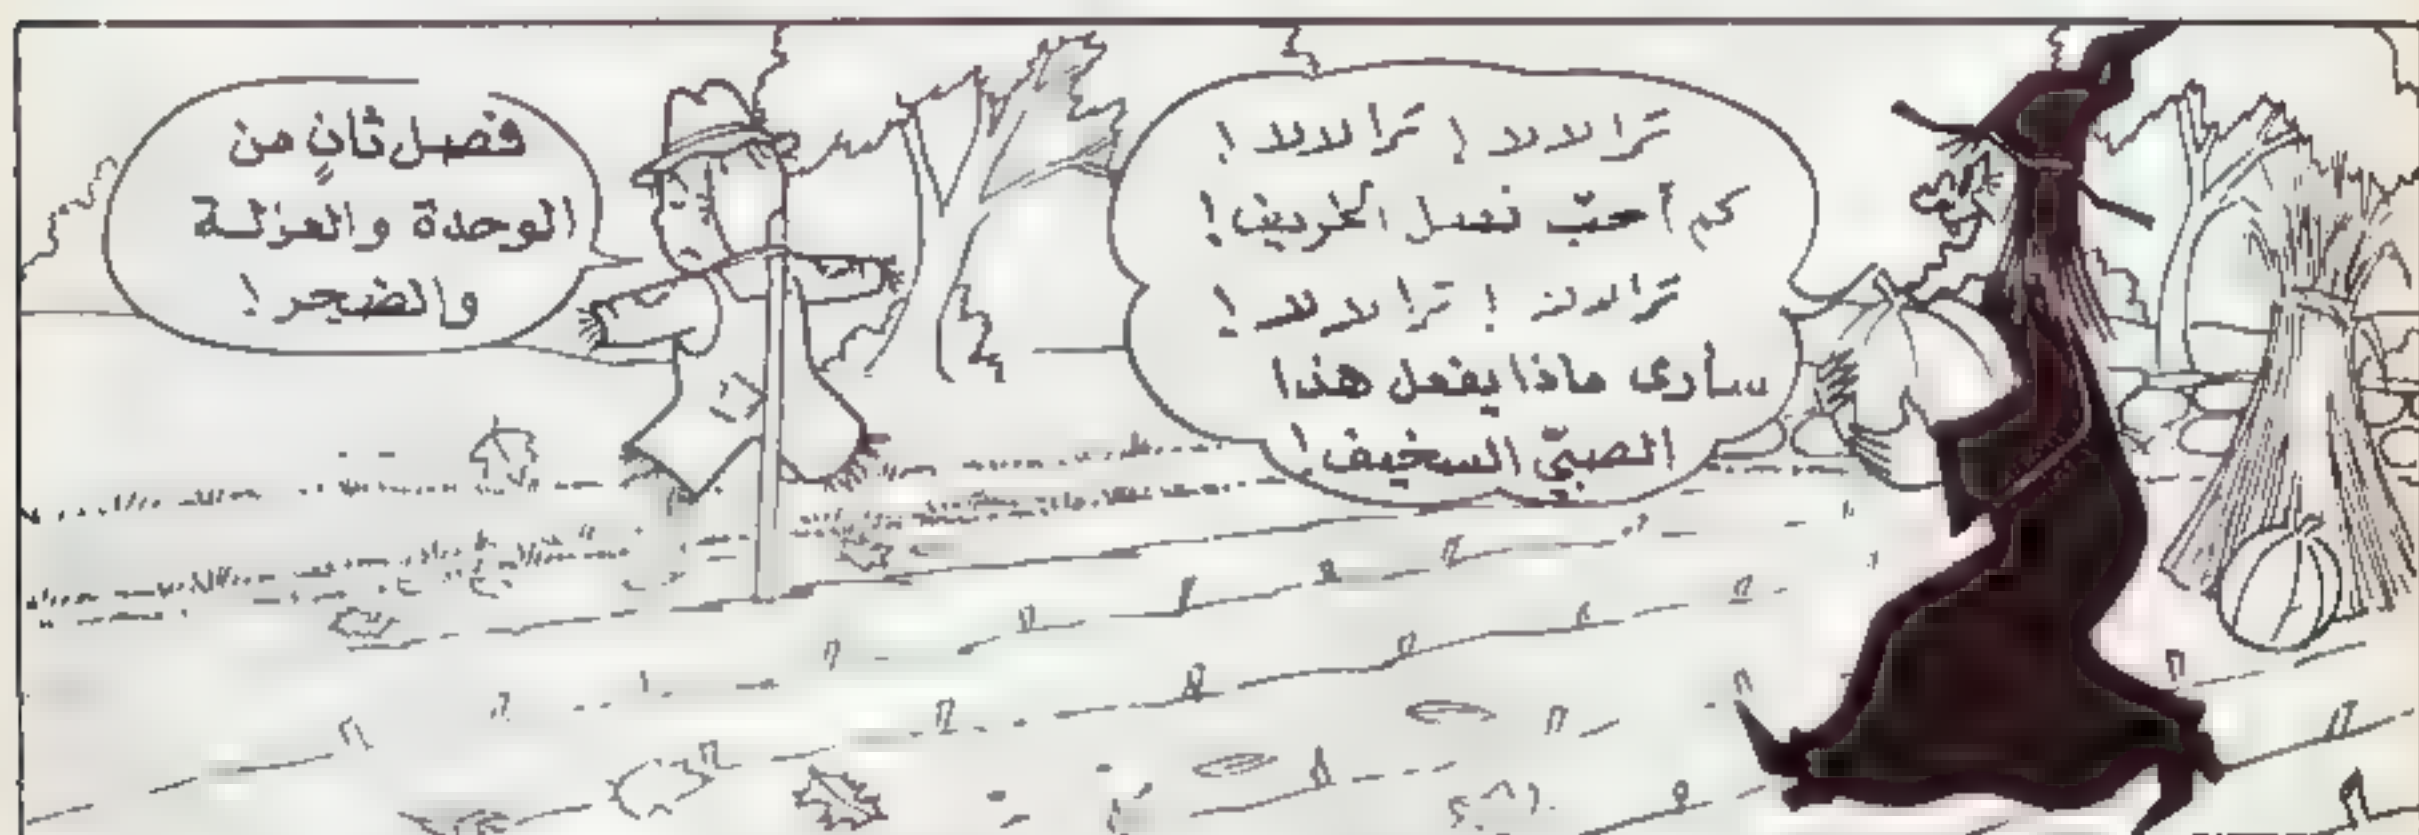 ترا لالا ! ترا لالا !
كم أحبّ فصل الخريف !
ترا لالا ! ترا لالا !
سأرى ماذا يفعل هذا
الصبيّ السخيف !
فصل ثانٍ من
الوحدة والعزلة
والضجر !